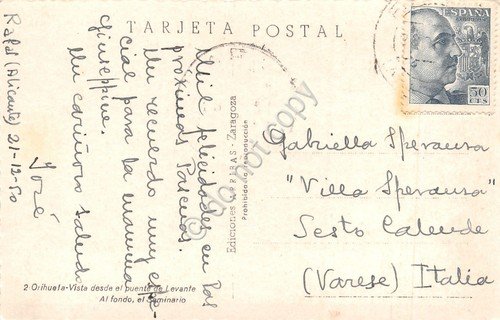 TARJETA POSTAL
ESPAÑA
50
CTS
Rafal (Alicante) 21-12-50
Mil felicidades en las
próximas Pascuas.
Un recuerdo muy espe-
cial para la mamma
Giuseppina.
Un cariñoso saludo
José
Ediciones ARRIBAS-Zaragoza
Prohibida la reproducción
Gabriella Speranza
"Villa Speranza"
Sesto Calende
(Varese) Italia
2-Orihuela-Vista desde el puente de Levante
Al fondo, el Seminario
do not copy